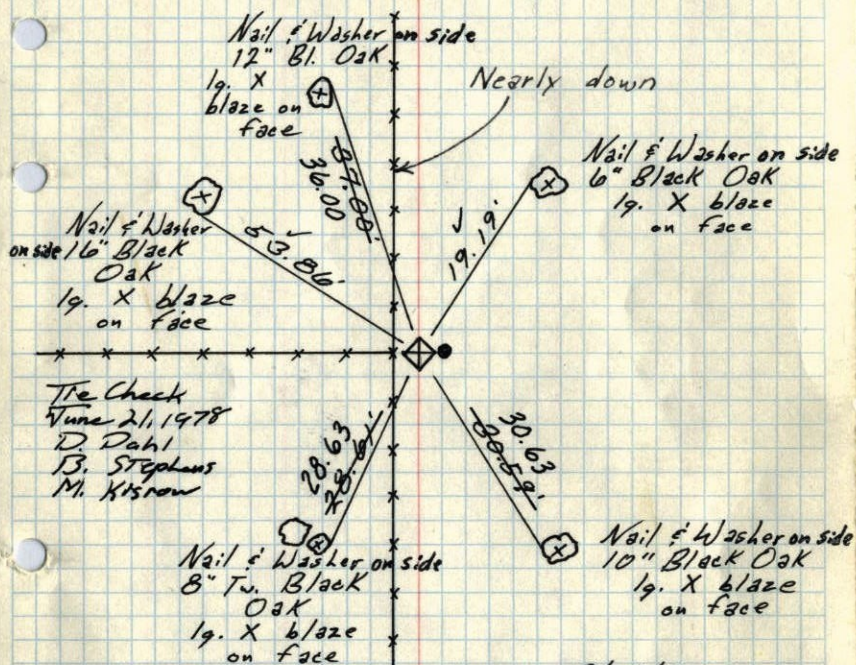 Nail & Washer on side
12" Bl. Oak
lg. X
blaze on
face
Nearly down
37.00'
36.00
Nail & Washer on side
6" Black Oak
lg. X blaze
on face
✓
19.19'
Nail & Washer
on side 16" Black
Oak
lg. X blaze
on face
✓
53.86'
Tie Check
June 21, 1978
D. Dahl
B. Stephens
M. Kisrow
28.63
28.61'
30.63
30.59'
Nail & Washer on side
8" Tw. Black
Oak
lg. X blaze
on face
Nail & Washer on side
10" Black Oak
lg. X blaze
on face